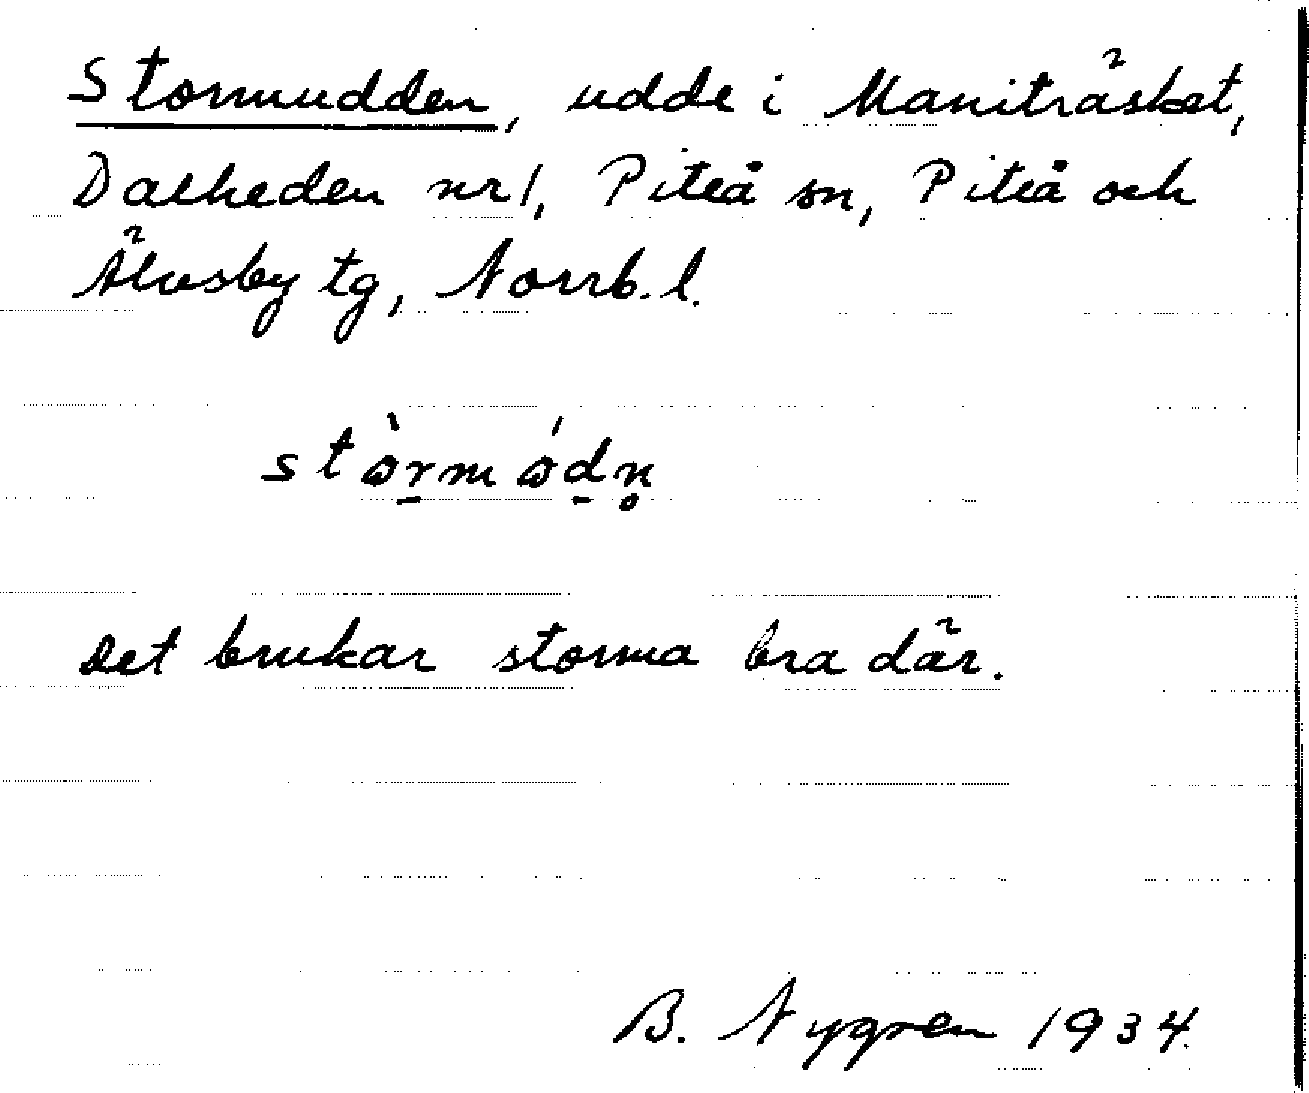 Stormudden, udde i Maniträsket,
Dalheden nr 1, Piteå sn, Piteå och
Älvsby tg, Norrb. l.
stɷ̀r̠mɷ́d̠n̥
Det brukar storma bra där.
B. Nygren 1934.